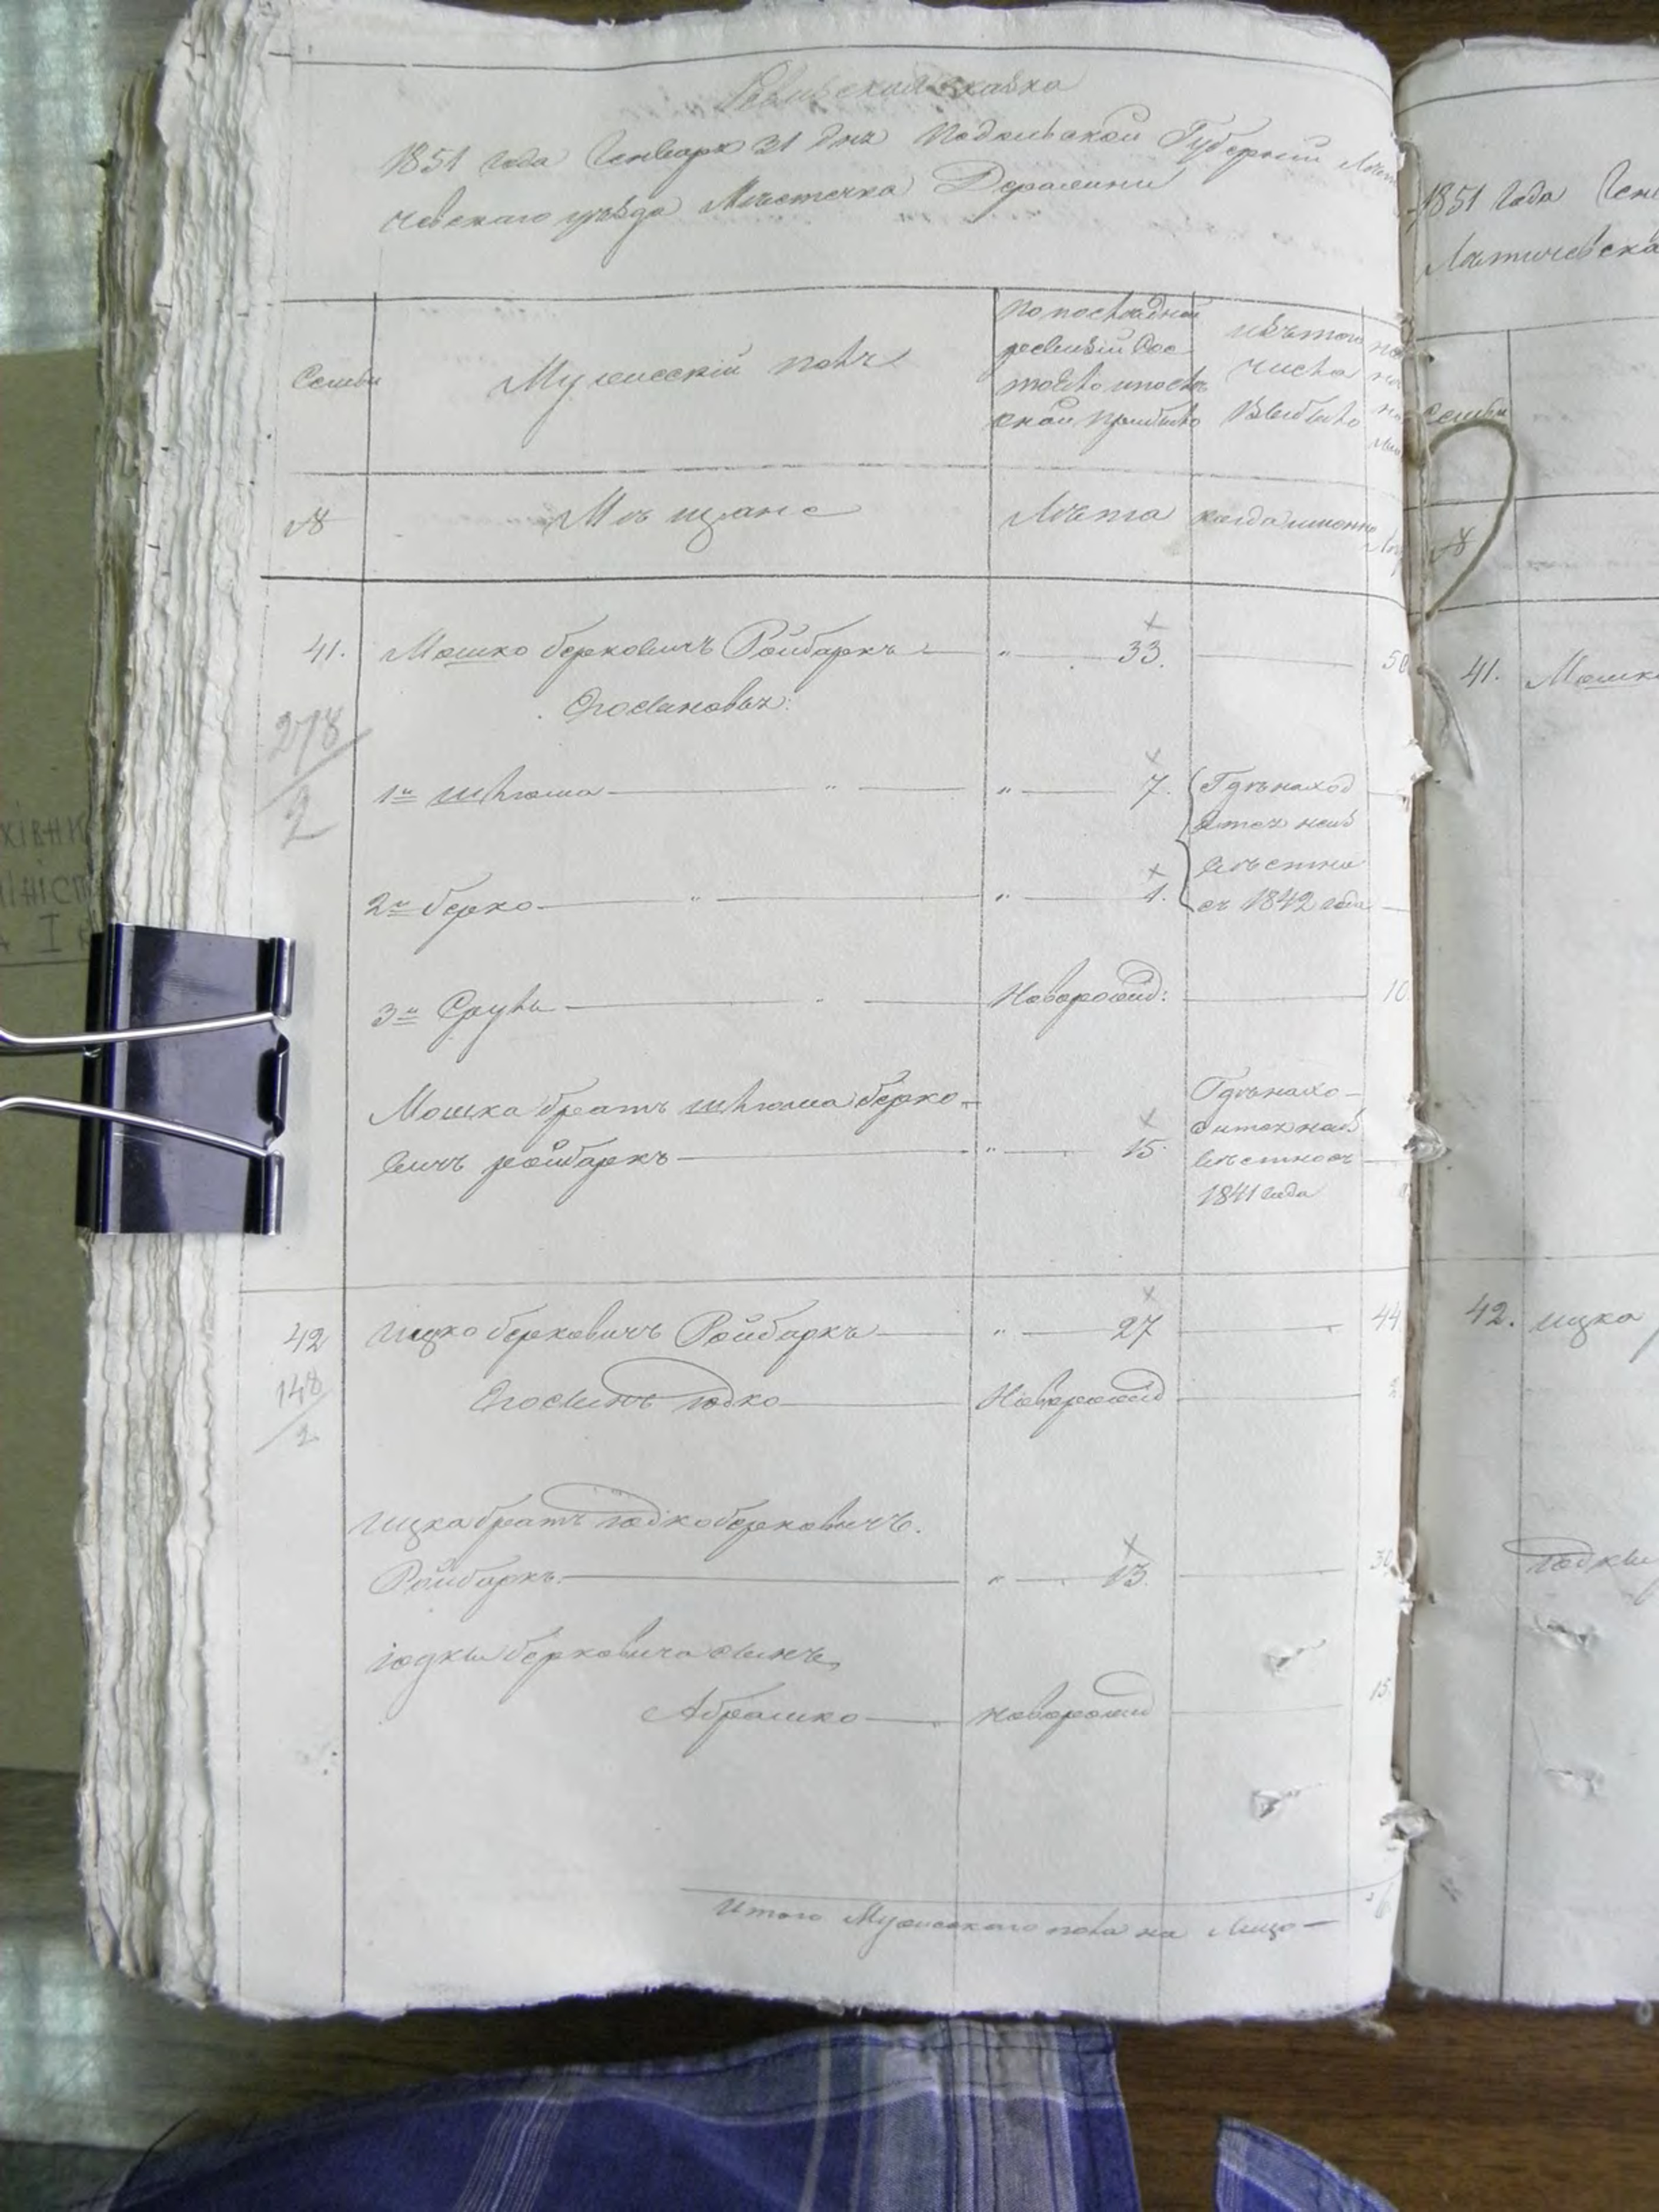 Ревизская сказка
1851 года Генваря 31 дня Подольской Губернии Лати
чевскаго уезда Местечка Деражни
Семьи
Мужеский полъ
По последней
ревизiи Сос
тояло и после
оной прибыло
Изъ того
числа
Выбыло
№
Мещане
Лета
когда именно
41.
Мошко Берковичъ Ройбаркъ
"
33.
50
Его сыновья:
278
2
1й Шлиома
"
7.
Где наход
ится неиз
вестно
съ 1842 года
2й Берко
"
1.
3й Сруль
Новорожд:
10
Мошка братъ Шлиома Берко-
вичъ Ройбаркъ
"
15.
Где нахо-
дится неиз
вестно съ
1841 года
42
Ицко Берковичъ Ройбаркъ
"
27
44
148
2
Его сынъ Іодко
Новорожд
Ицка братъ Іодко Берковичъ.
Ройбаркъ.
"
13.
Іодки Берковича сынъ
Абрамко
новорожд
15
Итого Мужескаго пола на Лицо
1851 года Ген
Латичевска
Семьи
№
41.
Мошк
42.
Ицка
Іодки